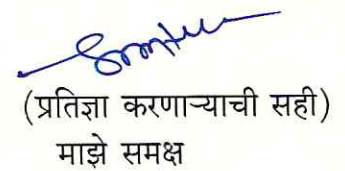 (प्रतिज्ञा करणाऱ्याची सही)
माझे समक्ष